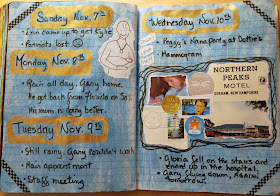 Sunday Nov. 7th
• Erin came up to get Kylie
• Patriots lost
Monday Nov. 8th
• Rain all day. Gary home.
He got back from Florida on Sat.
His mom is doing better.
Tuesday Nov. 9th
• Still rainy. Gary couldn't work
• Hair appointment
• Staff meeting
Wednesday Nov. 10th
• Peggy's Mana party at Dottie's
• Mammogram
NORTHERN
PEAKS
MOTEL
GORHAM, NEW HAMPSHIRE
• Gloria fell on the stairs and
wound up in the hospital
• Gary flying down, AGAIN,
tomorrow.